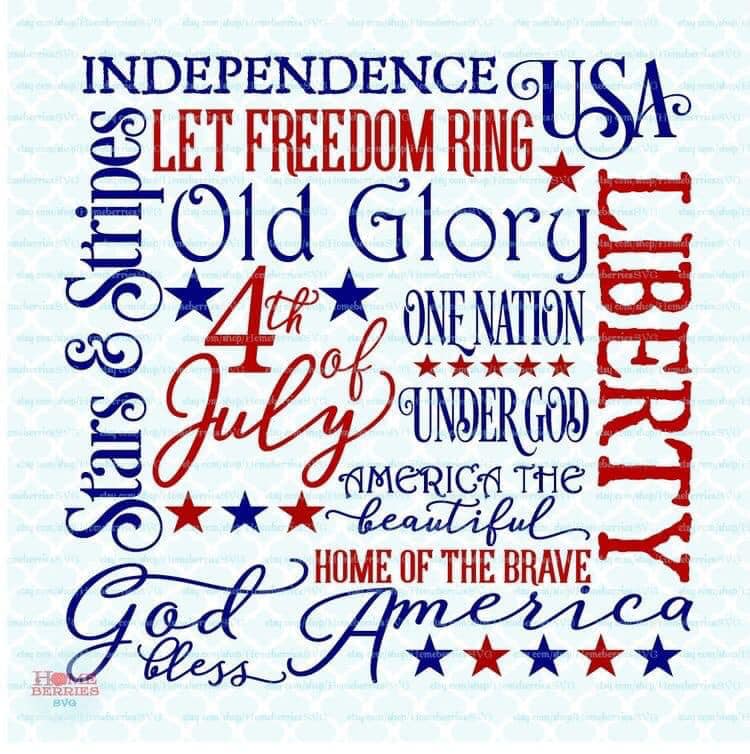 INDEPENDENCE
USA
LET FREEDOM RING
Stars & Stripes
Old Glory
LIBERTY
4th of
July
ONE NATION
UNDER GOD
AMERICA THE
beautiful
HOME OF THE BRAVE
God bless
America
HOME
BERRIES
SVG
etsy.com/shop/HomeberriesSVG